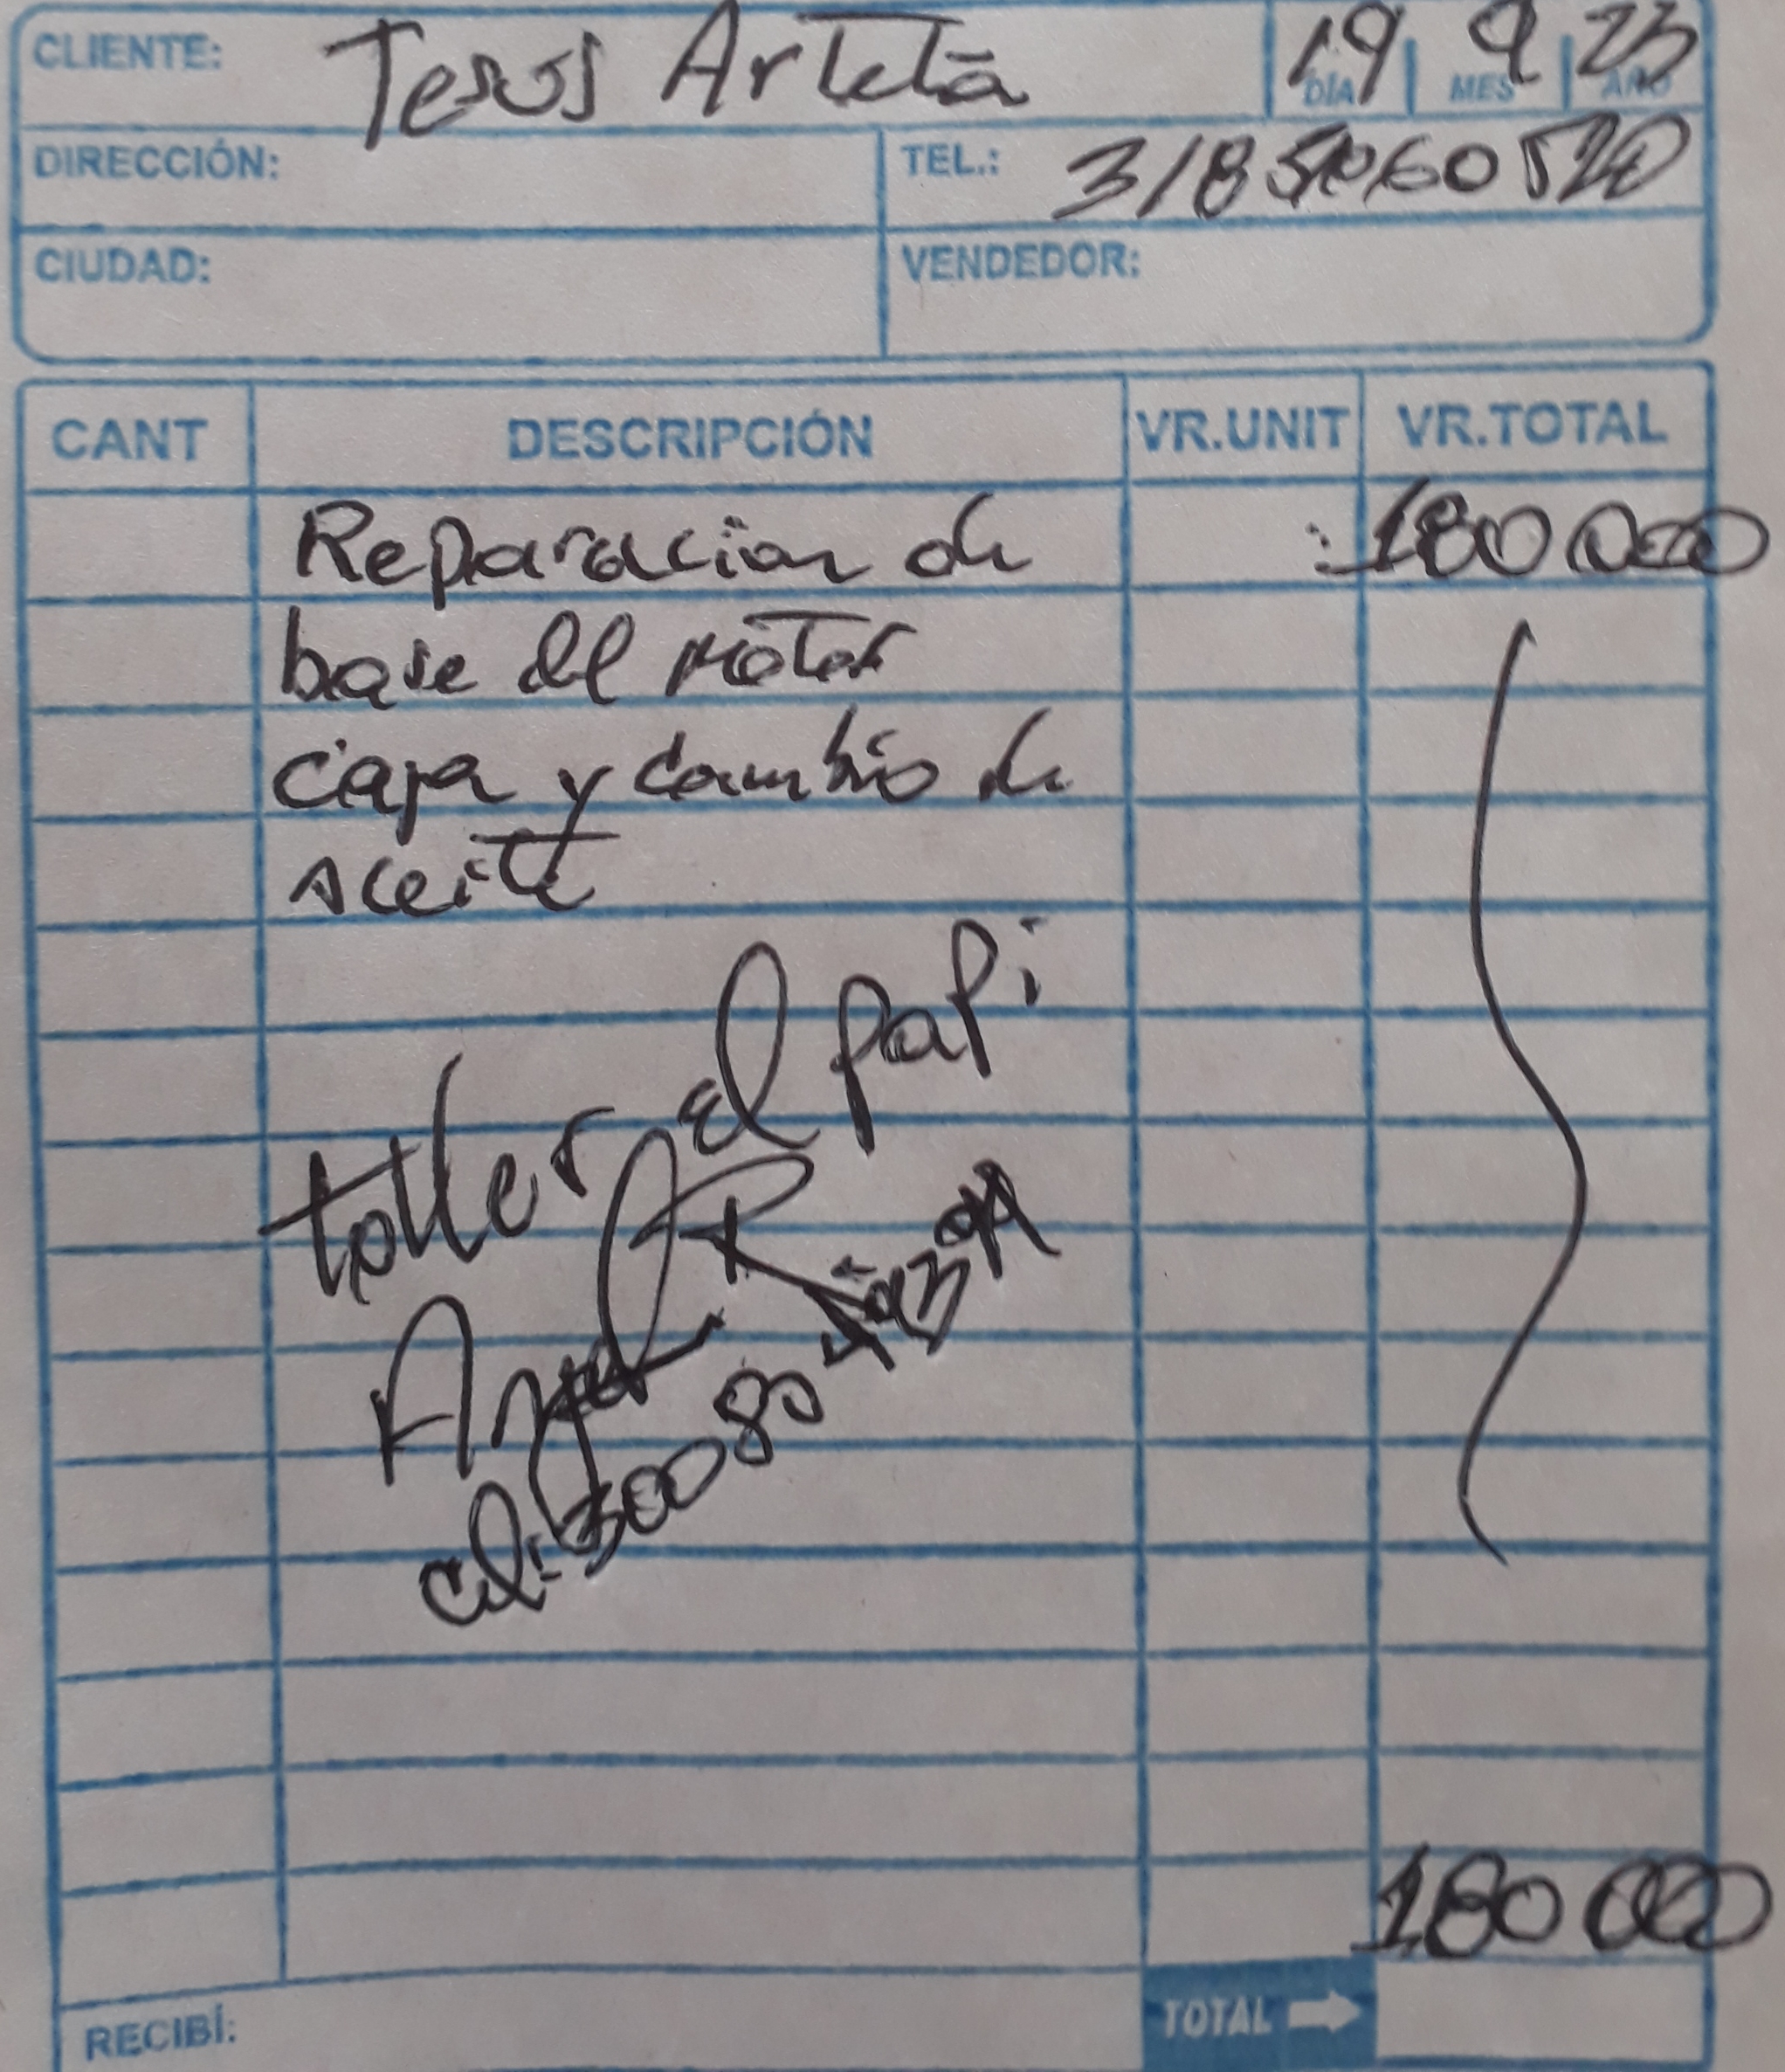 CLIENTE: Jesus Arteta 19 9 23
DÍA MES AÑO
DIRECCIÓN: TEL.: 318
CIUDAD: VENDEDOR:
CANT DESCRIPCIÓN VR.UNIT VR.TOTAL
Reparacion de 180000
base del motor
caja y cambio de
aceite
taller el papi
cel: 30080
180000
RECIBÍ: TOTAL